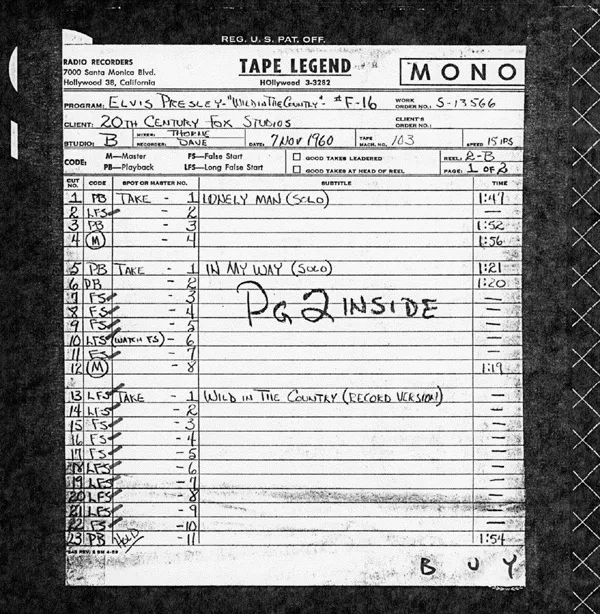 REG. U. S. PAT. OFF.
RADIO RECORDERS
7000 Santa Monica Blvd.
Hollywood 38, California
TAPE LEGEND
Hollywood 3-3282
MONO
PROGRAM: ELVIS PRESLEY-"WILD IN THE COUNTRY"- #F-16 WORK ORDER NO.: S-13566
CLIENT: 20TH CENTURY FOX STUDIOS CLIENT'S ORDER NO.:
STUDIO: B MIXER: THORNE RECORDER: DAVE DATE: 7 NOV 1960 TAPE MACH. NO. 103 SPEED 15 IPS
CODE: M—Master FS—False Start GOOD TAKES LEADERED REEL: 2-B
PB—Playback LFS—Long False Start GOOD TAKES AT HEAD OF REEL PAGE: 1 OF 2
CUT NO. CODE SPOT OR MASTER NO. SUBTITLE TIME
1 PB TAKE - 1 LONELY MAN (SOLO) 1:47
2 LFS - 2 —
3 PB - 3 1:52
4 M - 4 1:56
5 PB TAKE - 1 IN MY WAY (SOLO) 1:21
6 PB - 2 1:20
7 FS - 3 —
8 FS - 4 —
9 FS - 5 —
10 LFS (WATCH FS) - 6 —
11 FS - 7 —
12 M - 8 1:19
PG 2 INSIDE
13 LFS TAKE - 1 WILD IN THE COUNTRY (RECORD VERSION) —
14 LFS - 2 —
15 FS - 3 —
16 FS - 4 —
17 FS - 5 —
18 LFS - 6 —
19 LFS - 7 —
20 LFS - 8 —
21 LFS - 9 —
22 FS - 10 —
23 PB HOLD - 11 1:54
B U Y